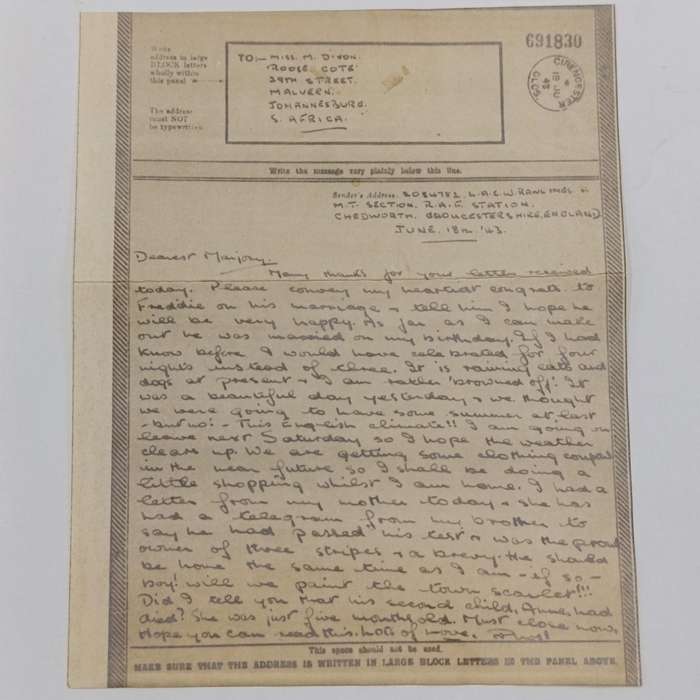 Write
address in large
BLOCK letters
wholly within
this panel
The address
must NOT
be typewritten
TO:- MISS. M. DIXON.
"ROOSE COTE"
39TH STREET.
MALVERN.
JOHANNESBURG.
S. AFRICA.
691830
CIRENCESTER
18 JU
43
GLOS
Write the message very plainly below this line.
Sender's Address L.A.C.W. RAWLINGS
M.T. SECTION. R.A.F. STATION.
CHEDWORTH. GLOUCESTERSHIRE, ENGLAND
JUNE. 18th. '43.
Dearest Marjory,
Many thanks for your letter received
today. Please convey my heartiest congrats. to
Freddie on his marriage & tell him I hope he
will be very happy. As far as I can make
out he was married on my birthday. If I had
know before I would have celebrated for four
nights instead of three. It is raining cats and
dogs at present & I am rather 'browned off'. It
was a beautiful day yesterday & we thought
we were going to have some summer at last
- but no! - This English climate!! I am going on
leave next Saturday so I hope the weather
clears up. We are getting some clothing coupons
in the near future so I shall be doing a
little shopping whilst I am home. I had a
letter from my mother today & she has
had a telegram from my brother to
say he had passed his test & was the proud
owner of three stripes & a brevy. He should
be home the same time as I am - if so -
boy! will we paint the town scarlet!!!
Did I tell you that his second child, Anne, had
died? She was just five months old. Must close now,
Hope you can read this. Lots of love,
This space should not be used.
MAKE SURE THAT THE ADDRESS IS WRITTEN IN LARGE BLOCK LETTERS IN THE PANEL ABOVE.